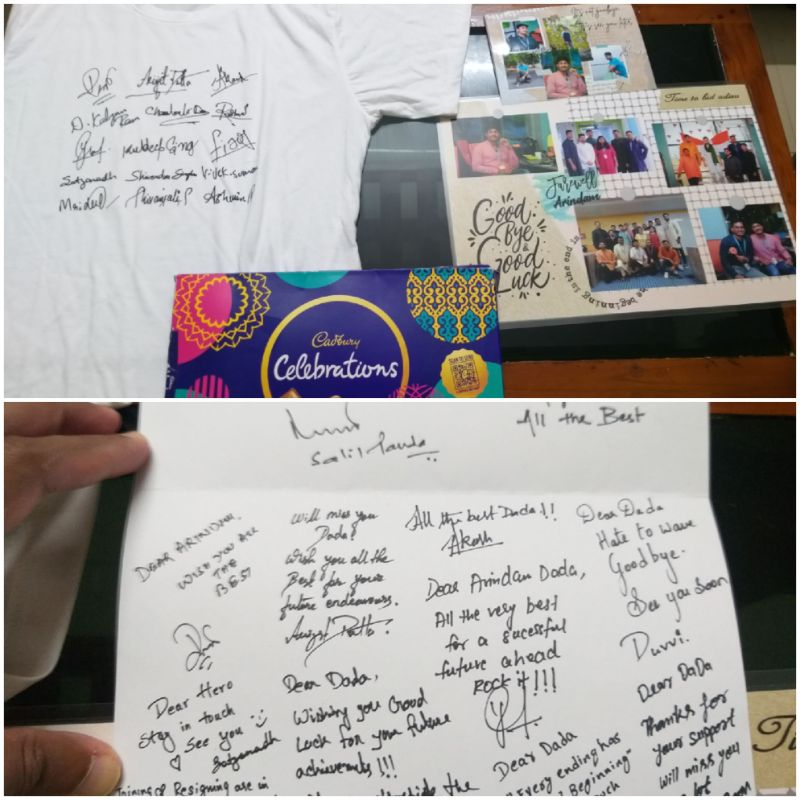 Arijit Dutta
Akash
D. Kalyan
Ram
Kuldeep Garg
Satyanadh
Maidul
Shivanjali P
Ashwin
It's not goodbye
see you later
Time to bid adieu
Farewell
Arindam
Good
Bye
&
Good
Luck
beginning is the end is
Cadbury
Celebrations
SCAN TO SEND
All the Best
Salil Panda
DEAR ARINDAM,
WISH YOU ALL
THE
BEST
Dear Hero
Stay in touch
See you
Satyanadh
Training & Resigning are in
Will miss you
Dada!
Wish you all the
Best for your
future endeavours.
Arijit Dutta
Dear Dada,
Wishing you Good
Luck for your future
achievements !!!
the
All the best Dada!!
Akash
Dear Arindam Dada,
All the very best
for a sucessful
future ahead
Rock it!!!
Dear Dada
"Every ending has
Beginning"
Dear Dada
Hate to wave
Goodbye.
See you Soon
Durvi.
Dear DaDa
Thanks for
your support
Will miss you
Ti